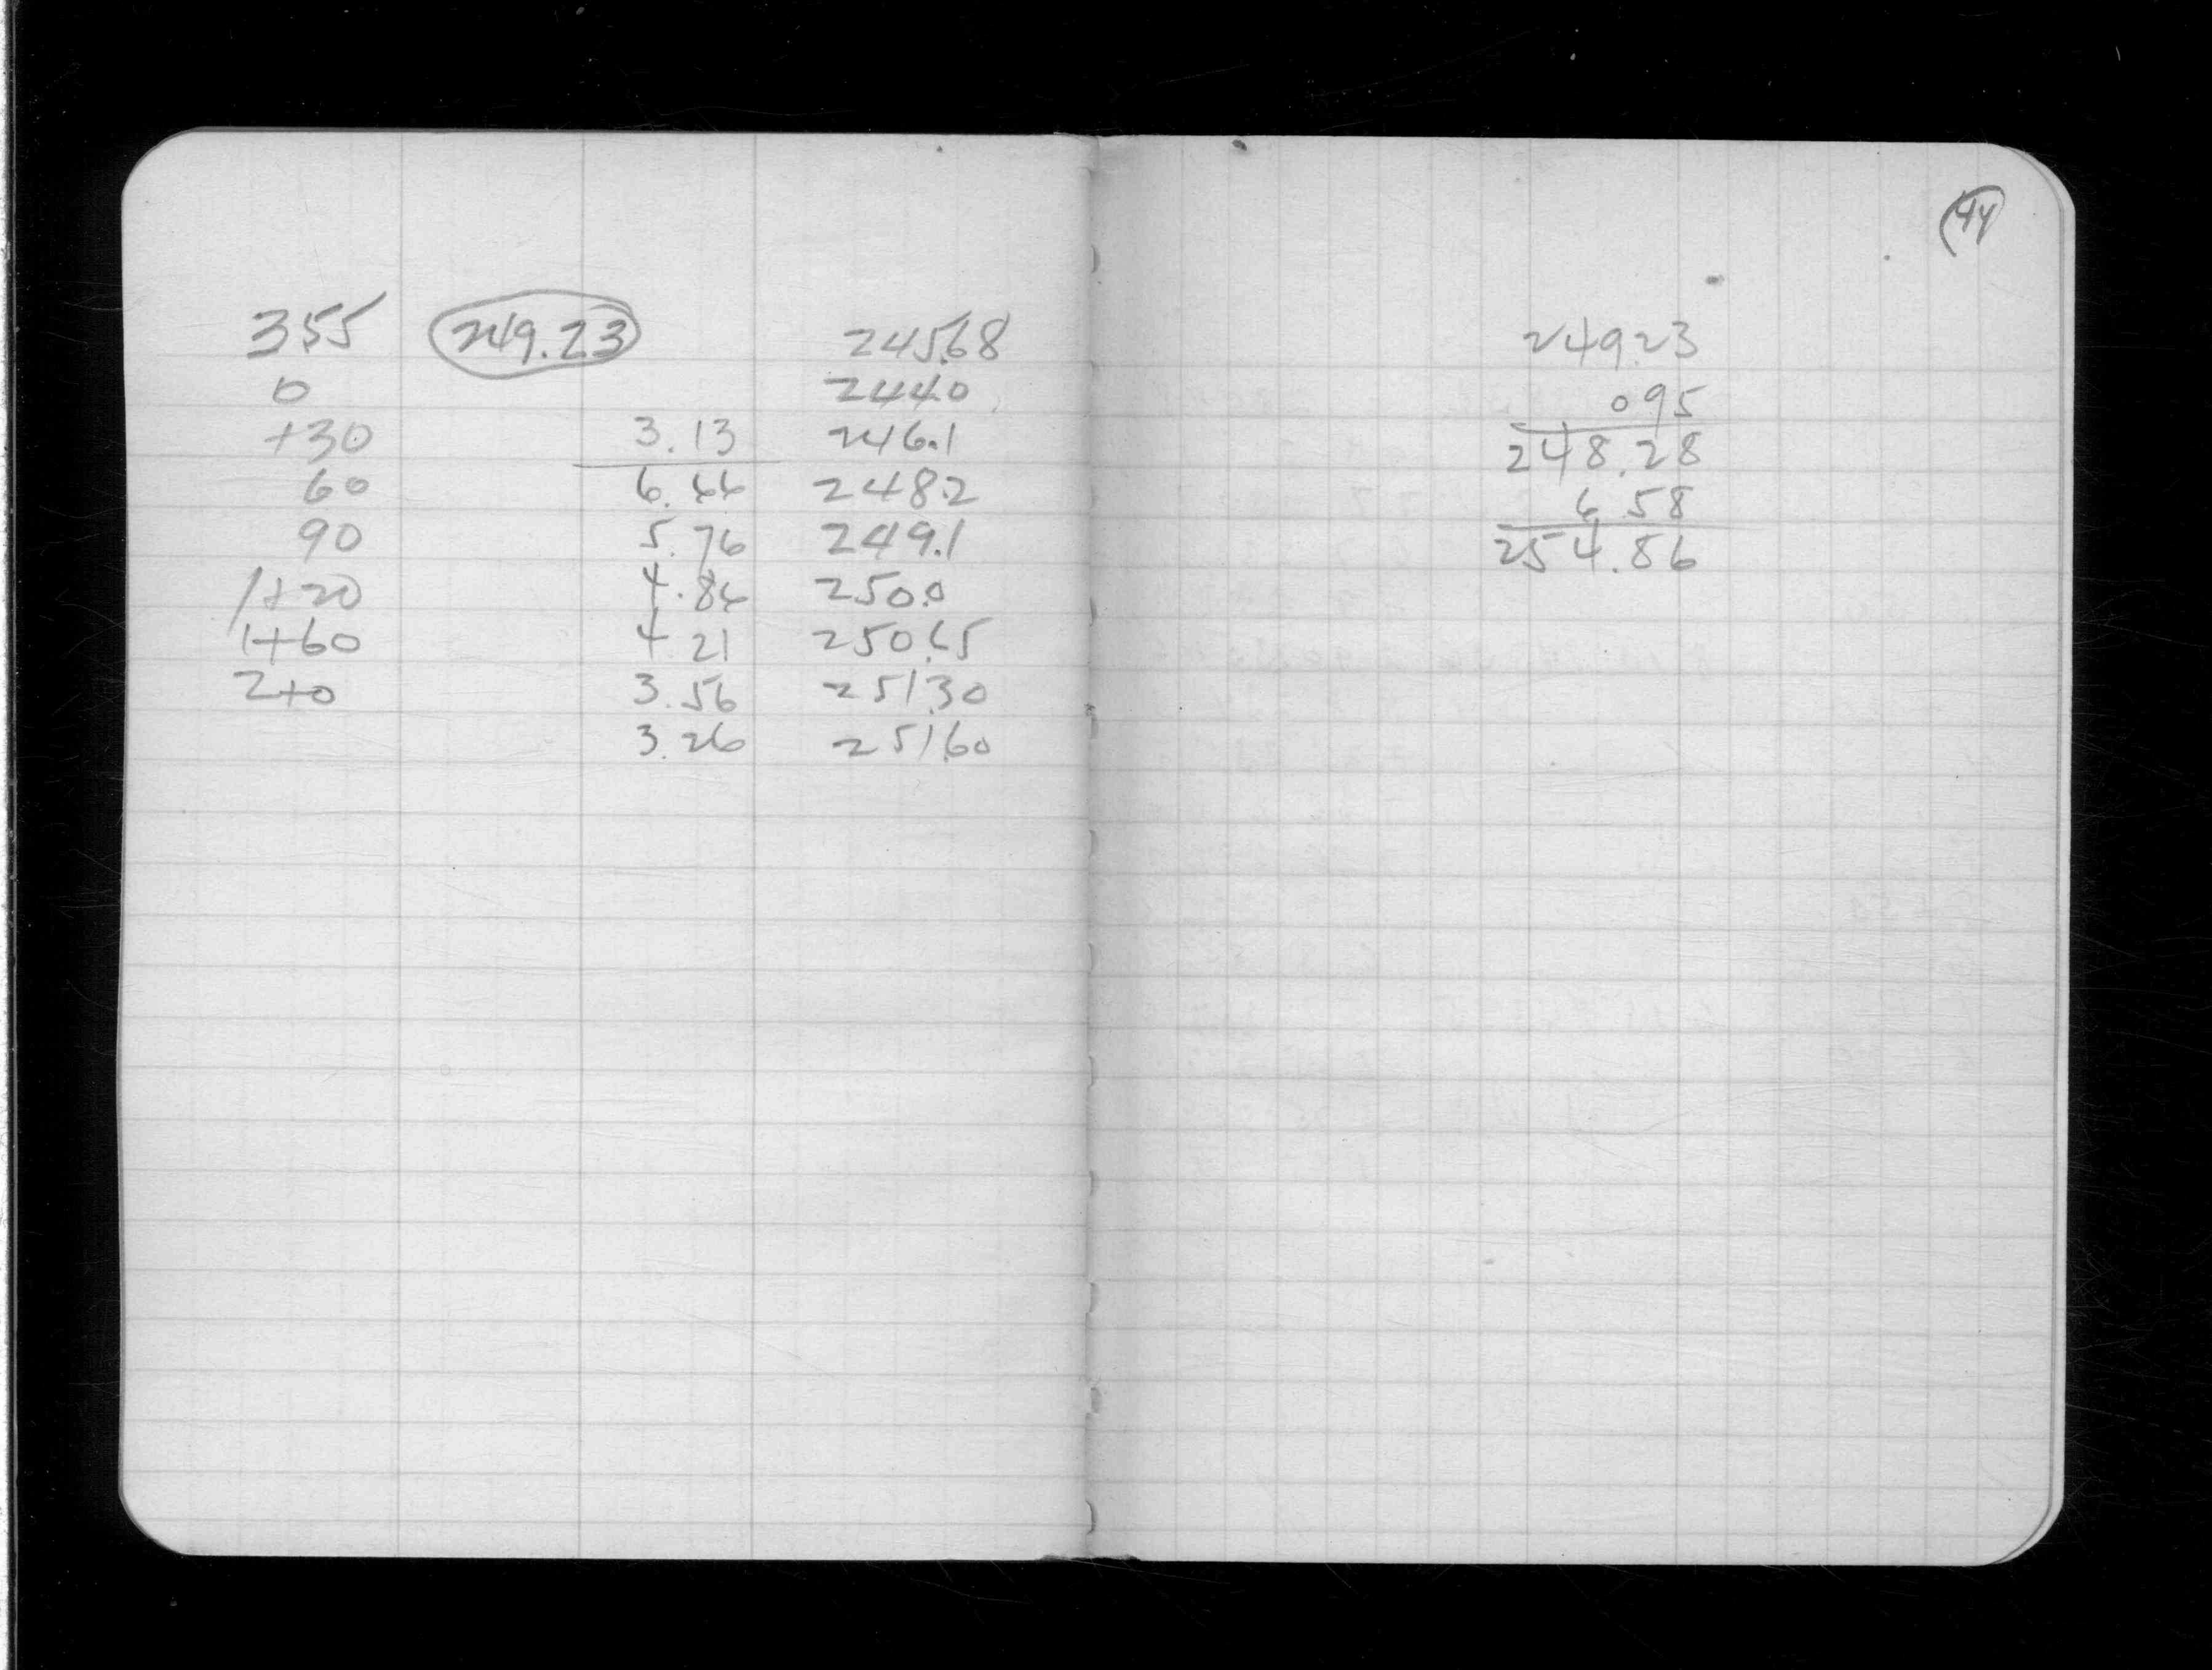 355 249.23 245.68
0 244.0
+30 3.13 246.1
60 6.66 248.2
90 5.76 249.1
1+20 4.86 250.0
1+60 4 21 250.65
2+0 3.56 251.30
3.26 251.60
44
249.23
0 95
248.28
6.58
254.86